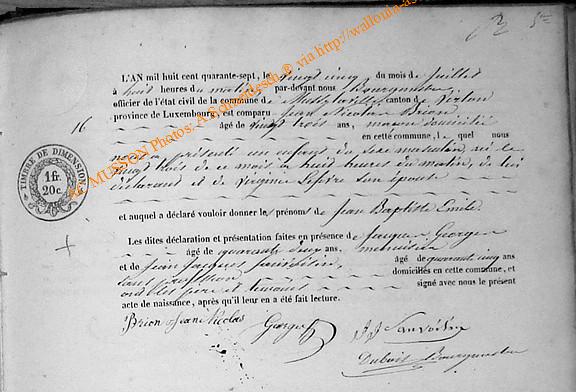 5
L'AN mil huit cent quarante-sept, le vingt cinq du mois de juillet
à huit heures du matin par-devant nous Bourgmestre
officier de l'état civil de la commune de canton de Virton
province de Luxembourg, est comparu Jean Nicolas Brion
16
âgé de vingt trois ans, domicilié
en cette commune, lequel nous
a présenté un enfant du sexe masculin, né le
vingt trois de ce mois à huit heures du matin, de lui
déclarant et de Virginie Lefevre son épouse
TIMBRE DE DIMENSION
1 fr.
20 c.
et auquel a déclaré vouloir donner les prénoms de Jean Baptiste Emile
Les dites déclaration et présentation faites en présence de Jacques Georges
âgé de quarante ans, menuisier
et de Jean Jacques âgé de quarante cinq ans
sans profession domiciliés en cette commune, et
ont les père et témoins signé avec nous le présent
acte de naissance, après qu'il leur en a été fait lecture.
Brion Jean Nicolas Georges J J
Dubois Bourgmestre
MUSSON Photos: via http://wallonia-as